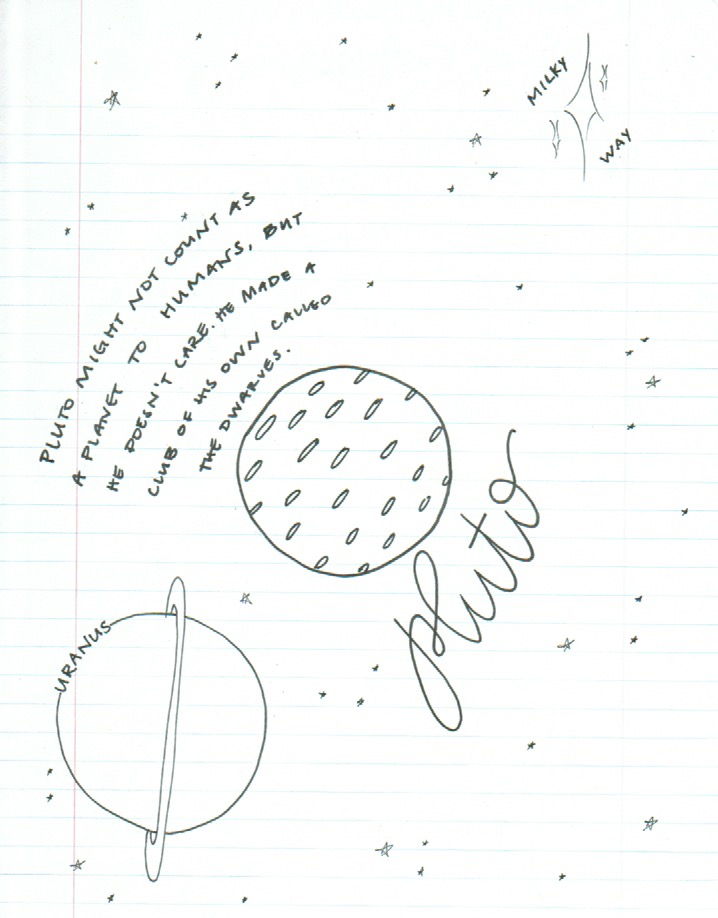 MILKY
WAY
PLUTO MIGHT NOT COUNT AS
A PLANET TO HUMANS, BUT
HE DOESN'T CARE. HE MADE A
CLUB OF HIS OWN CALLED
THE DWARVES.
pluto
URANUS